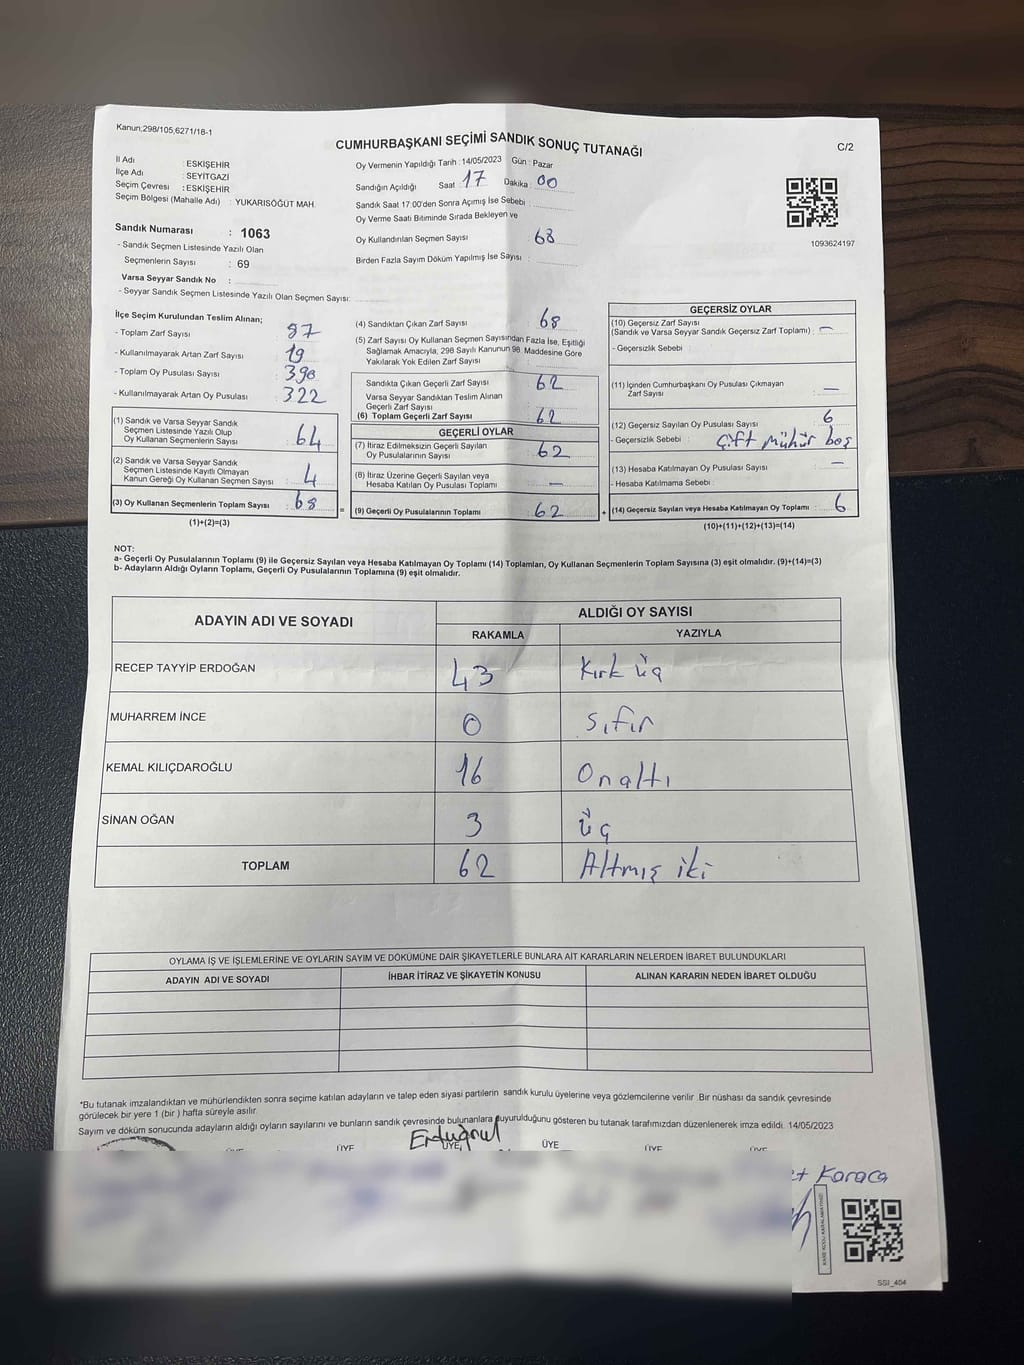 Kanun;298/105,6271/18-1
CUMHURBAŞKANI SEÇİMİ SANDIK SONUÇ TUTANAĞI
C/2
İl Adı : ESKİŞEHİR
İlçe Adı : SEYİTGAZİ
Seçim Çevresi : ESKİŞEHİR
Seçim Bölgesi (Mahalle Adı) : YUKARISÖĞÜT MAH.
Sandık Numarası : 1063
- Sandık Seçmen Listesinde Yazılı Olan
Seçmenlerin Sayısı : 69
Varsa Seyyar Sandık No :
- Seyyar Sandık Seçmen Listesinde Yazılı Olan Seçmen Sayısı:
Oy Vermenin Yapıldığı Tarih : 14/05/2023 Gün : Pazar
Sandığın Açıldığı Saat : 17 Dakika : 00
Sandık Saat 17.00'den Sonra Açımış İse Sebebi :
Oy Verme Saati Bitiminde Sırada Bekleyen ve
Oy Kullandırılan Seçmen Sayısı : 68
Birden Fazla Sayım Döküm Yapılmış İse Sayısı :
1093624197
İlçe Seçim Kurulundan Teslim Alınan;
- Toplam Zarf Sayısı : 87
- Kullanılmayarak Artan Zarf Sayısı : 19
- Toplam Oy Pusulası Sayısı : 390
- Kullanılmayarak Artan Oy Pusulası : 322
(1) Sandık ve Varsa Seyyar Sandık
Seçmen Listesinde Yazılı Olup
Oy Kullanan Seçmenlerin Sayısı : 64
(2) Sandık ve Varsa Seyyar Sandık
Seçmen Listesinde Kayıtlı Olmayan
Kanun Gereği Oy Kullanan Seçmen Sayısı : 4
(3) Oy Kullanan Seçmenlerin Toplam Sayısı : 68
(1)+(2)=(3)
(4) Sandıktan Çıkan Zarf Sayısı : 68
(5) Zarf Sayısı Oy Kullanan Seçmen Sayısından Fazla İse, Eşitliği
Sağlamak Amacıyla, 298 Sayılı Kanunun 98. Maddesine Göre
Yakılarak Yok Edilen Zarf Sayısı :
Sandıkta Çıkan Geçerli Zarf Sayısı : 62
Varsa Seyyar Sandıktan Teslim Alınan
Geçerli Zarf Sayısı :
(6) Toplam Geçerli Zarf Sayısı : 62
GEÇERLİ OYLAR
(7) İtiraz Edilmeksizin Geçerli Sayılan
Oy Pusulalarının Sayısı : 62
(8) İtiraz Üzerine Geçerli Sayılan veya
Hesaba Katılan Oy Pusulası Toplamı : —
=
(9) Geçerli Oy Pusulalarının Toplamı : 62
+
GEÇERSİZ OYLAR
(10) Geçersiz Zarf Sayısı
(Sandık ve Varsa Seyyar Sandık Geçersiz Zarf Toplamı) : —
- Geçersizlik Sebebi :
(11) İçinden Cumhurbaşkanı Oy Pusulası Çıkmayan
Zarf Sayısı : —
(12) Geçersiz Sayılan Oy Pusulası Sayısı : 6
- Geçersizlik Sebebi : çift mühür boş
(13) Hesaba Katılmayan Oy Pusulası Sayısı : —
- Hesaba Katılmama Sebebi :
(14) Geçersiz Sayılan veya Hesaba Katılmayan Oy Toplamı : 6
(10)+(11)+(12)+(13)=(14)
NOT:
a- Geçerli Oy Pusulalarının Toplamı (9) ile Geçersiz Sayılan veya Hesaba Katılmayan Oy Toplamı (14) Toplamları, Oy Kullanan Seçmenlerin Toplam Sayısına (3) eşit olmalıdır. (9)+(14)=(3)
b- Adayların Aldığı Oyların Toplamı, Geçerli Oy Pusulalarının Toplamına (9) eşit olmalıdır.
ADAYIN ADI VE SOYADI
ALDIĞI OY SAYISI
RAKAMLA YAZIYLA
RECEP TAYYİP ERDOĞAN 43 Kırk üç
MUHARREM İNCE 0 sıfır
KEMAL KILIÇDAROĞLU 16 Onaltı
SİNAN OĞAN 3 üç
TOPLAM 62 Altmış iki
OYLAMA İŞ VE İŞLEMLERİNE VE OYLARIN SAYIM VE DÖKÜMÜNE DAİR ŞİKAYETLERLE BUNLARA AİT KARARLARIN NELERDEN İBARET BULUNDUKLARI
ADAYIN ADI VE SOYADI İHBAR İTİRAZ VE ŞİKAYETİN KONUSU ALINAN KARARIN NEDEN İBARET OLDUĞU
*Bu tutanak imzalandıktan ve mühürlendikten sonra seçime katılan adayların ve talep eden siyasi partilerin sandık kurulu üyelerine veya gözlemcilerine verilir .Bir nüshası da sandık çevresinde
görülecek bir yere 1 (bir ) hafta süreyle asılır
Sayım ve döküm sonucunda adayların aldığı oyların sayılarını ve bunların sandık çevresinde bulunanlara duyurulduğunu gösteren bu tutanak tarafımızdan düzenlenerek imza edildi. 14/05/2023
Erduğrul
ÜYE ÜYE ÜYE ÜYE ÜYE ÜYE
Karaca
SSI_404